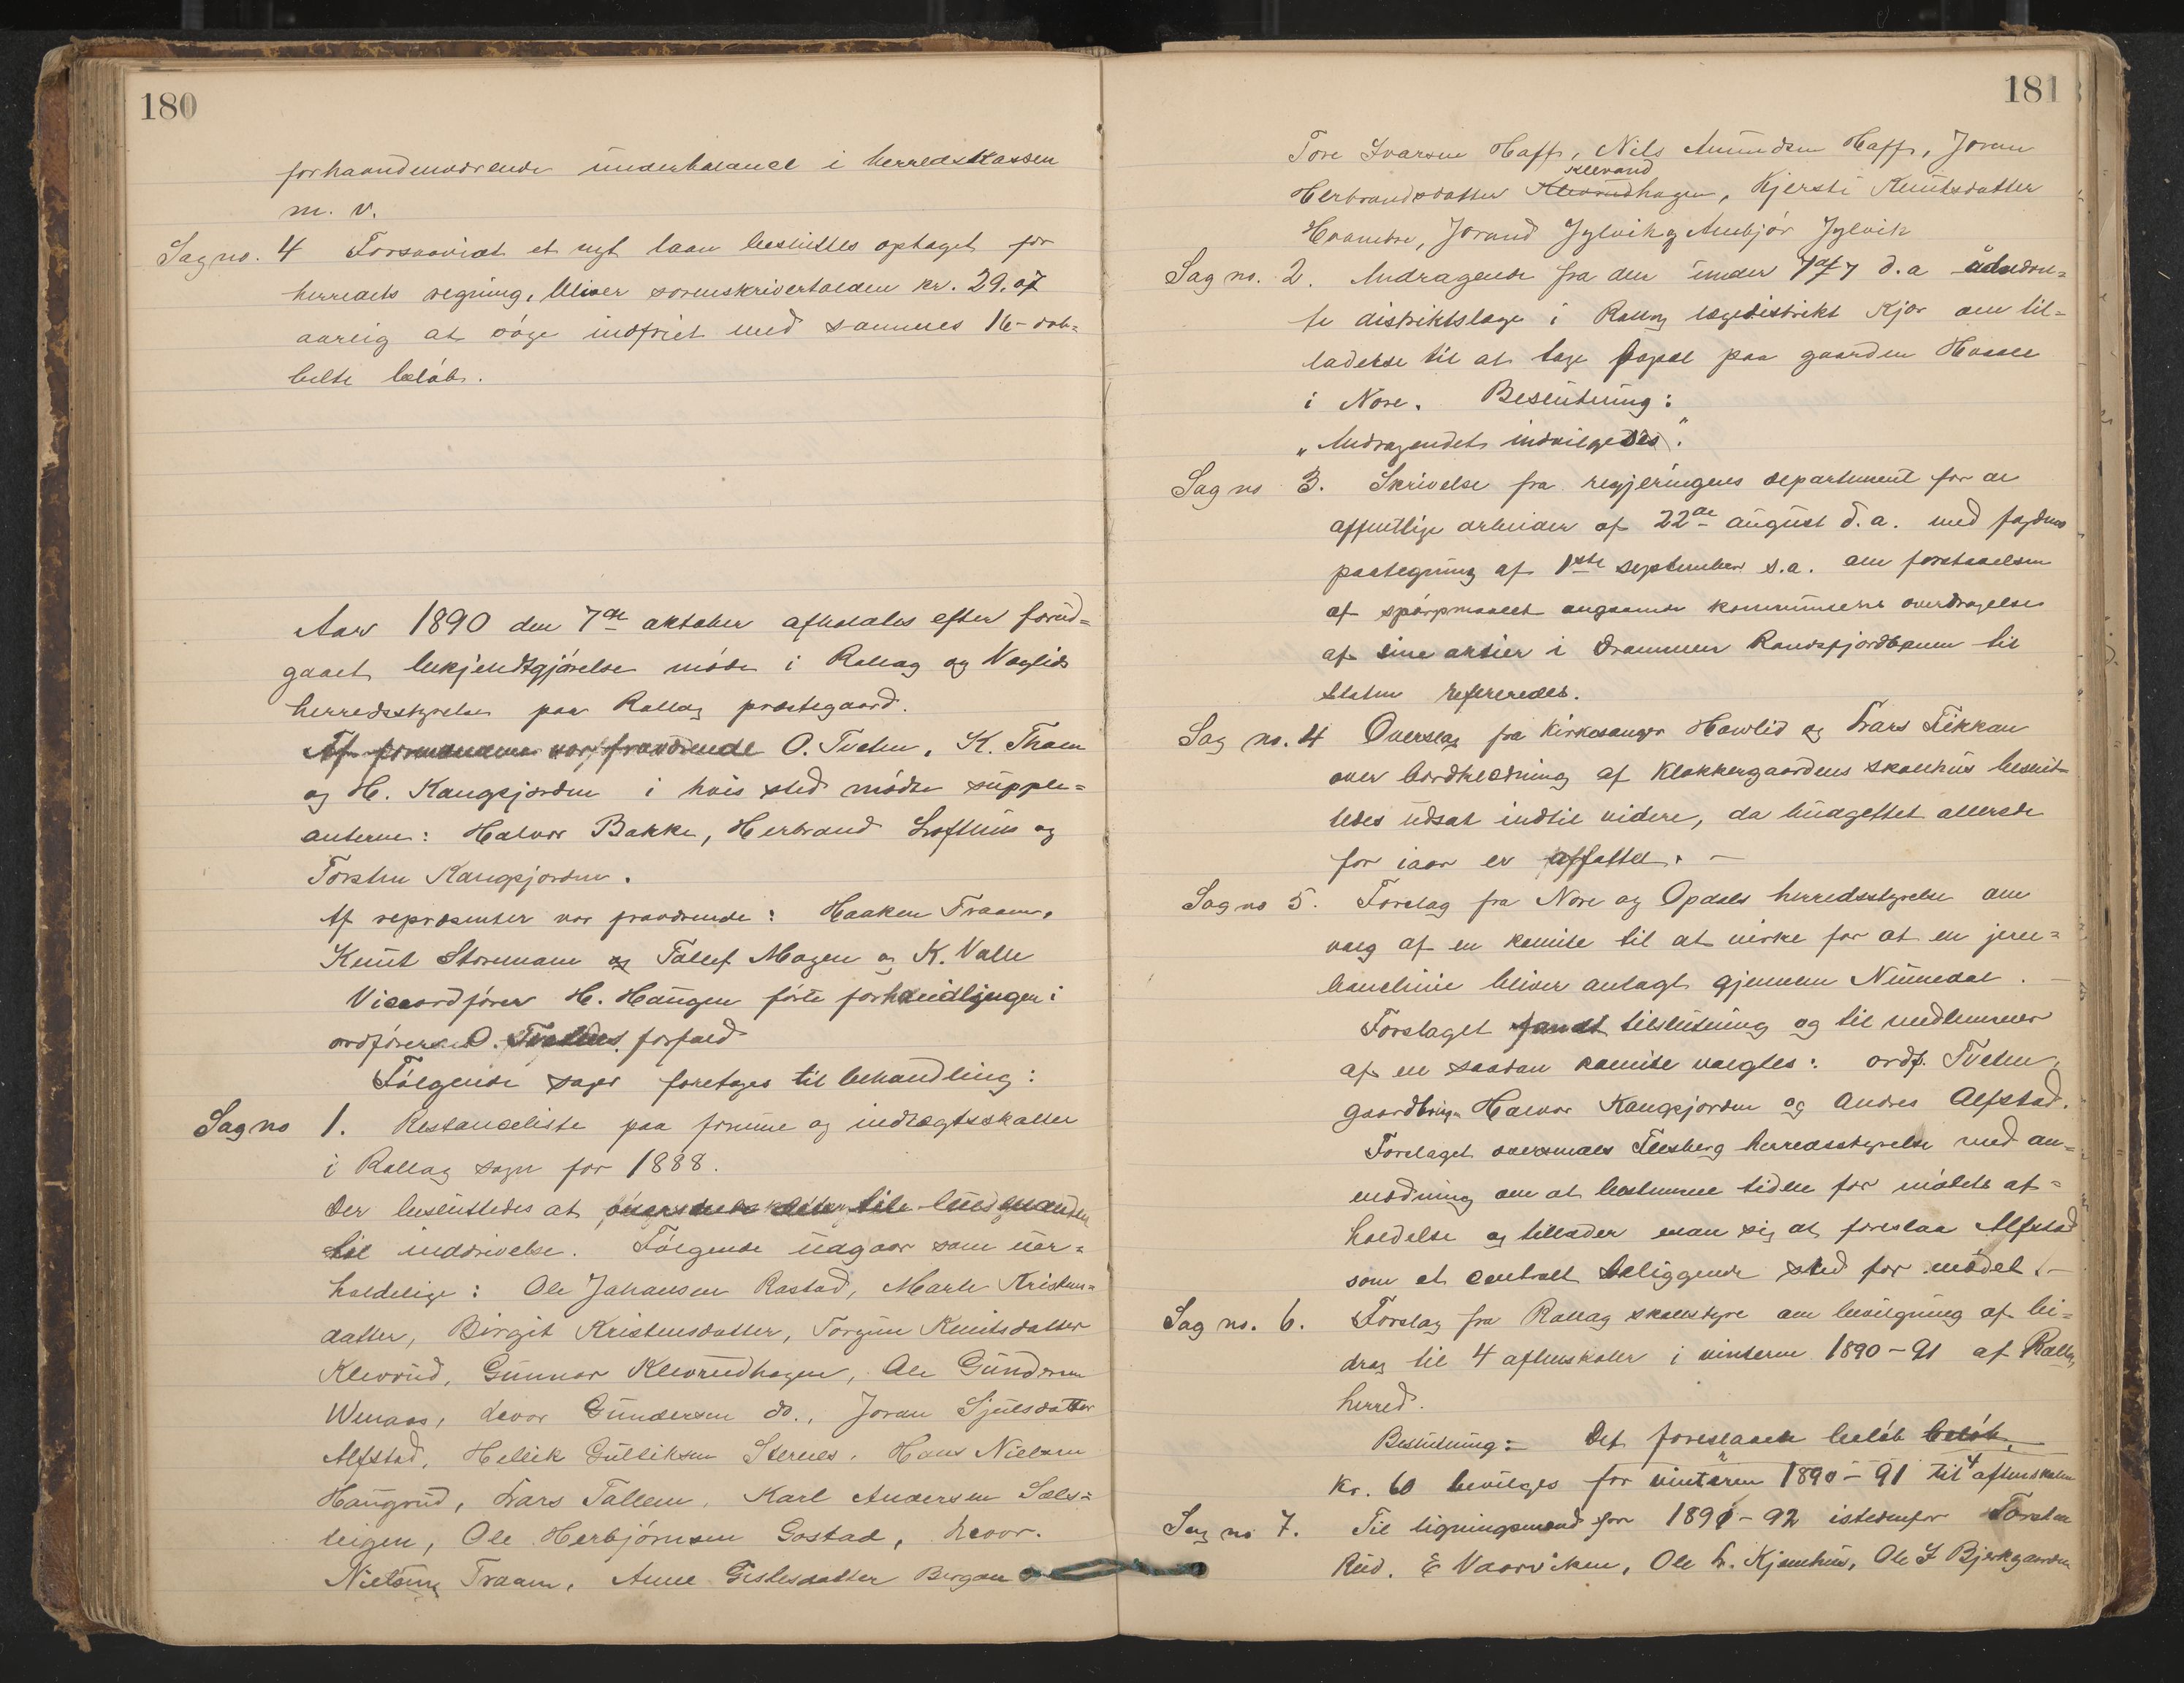 180
forhaandenværende underbalance i herredskassen
m. v.
Sag no. 4 Forsaavidt et nyt laan besluttes optaget for
herredets regning, bliver sorenskrivertolden kr. 29.07
aarlig at søge indfriet med sammes 16-dob-
belte beløb.
Aar 1890 den 7de oktober afholdtes efter forud-
gaaet bekjendtgjørelse møde i Rollag og Veglids
herredsstyrelse paa Rollag prestegaard.
Af formændene var fraværende O. Tveten, K. Traaen
og H. Kongsjorden i hvis sted mødte supple-
anterne: Halvor Bakke, Herbrand Lofthus og
Torsten Kongsjorden.
Af repræsenter var fraværende: Haaken Traaen,
Knut Storemoen og Tollef Mogen og K. Valle
Viceordfører H. Haugen førte forhandlingen i
ordførerens O. Tvetens forfald
Følgende sager foretages til behandling:
Sag no 1. Restanceliste paa formue og indtægtsskatter
i Rollag sogn for 1888.
Der besluttedes at oversende listen til lensmanden
til inddrivelse. Følgende udgaar som uer-
holdelige: Ole Johansen Rostad, Marte Kristens-
datter, Birgit Kristensdatter, Torgun Knutsdatter
Klevrud, Gunnar Klevrudhagen, Ole Gundersen
Wenaas, Levor Gundersen do., Joran Sjulsdatter
Alfstad, Hellik Gulliksen Sternes, Hans Nielsen
Haugrud, Lars Tollem, Karl Andersen Sols-
teigen, Ole Herbjørnsen Gostad, Levor.
Nielsen Traaen, Anne Gislesdatter Bergan
181
Tore Ivarsen Hoff, Nils Amundsen Hoff, Joran
Klevand
Herbrandsdatter Klevrudhagen, Kjersti Knutsdatter
Hvambre, Jorand Jylvik og Anbjør Jylvik
Sag no. 2. Andragende fra den under 7de/7 d.a udnævn-
te distriktslæge i Rollag lægedistrikt Kjør om til-
ladelse til at tage bopæl paa gaarden Hvaale
i Nore. Beslutning:
„Andragendet indvilgedes".
Sag no 3. Skrivelse fra regjeringens departement for de
offentlige arbeider af 22de august d.a. med fogdens
paategning af 1ste september s.a. om forstaaelsen
af spørgsmaalet angaaende kommunens overdragelse
af sine aktier i Drammen Randsfjordbanen til
staten refereredes.
Sag no. 4 Overslag fra kirkesanger Hovlid og Lars Tikkan
over bordklædning af klokkergaardens skolehus beslut-
tedes udsat indtil videre, da budgettet allerede
for iaar er affattet. –
Sag no 5. Forslag fra Nore og Opdals herredsstyrelse om
valg af en komite til at virke for at en jern-
banelinie bliver anlagt gjennem Numedal. –
Forslaget fandt tilslutning og til medlemmer
af en saadan komite valgtes: ordf. Tveten,
gaardbruger Halvor Kongsjorden og Andres Alfstad.
Forslaget oversendes Flesberg herredsstyrelse med an-
modning om at bestemme tiden for mødets af-
holdelse og tillader man sig at foreslaa Alfstad
som et centralt beliggende sted for mødet. –
Sag no. 6. Forslag fra Rollag skolestyre om bevilgning af bi-
drag til 4 aftenskoler i vinteren 1890–91 af Rollag
herred.
Beslutning: Det foreslaaede beløb beløb
kr. 60 bevilges for vinteren 1890–91 til 4 aftenskoler
Sag no 7. Til ligningsmænd for 1891–92 istedenfor Torsten
Rud, E Vaarviken, Ole L. Kjemhus, Ole T Bjerkgaarden